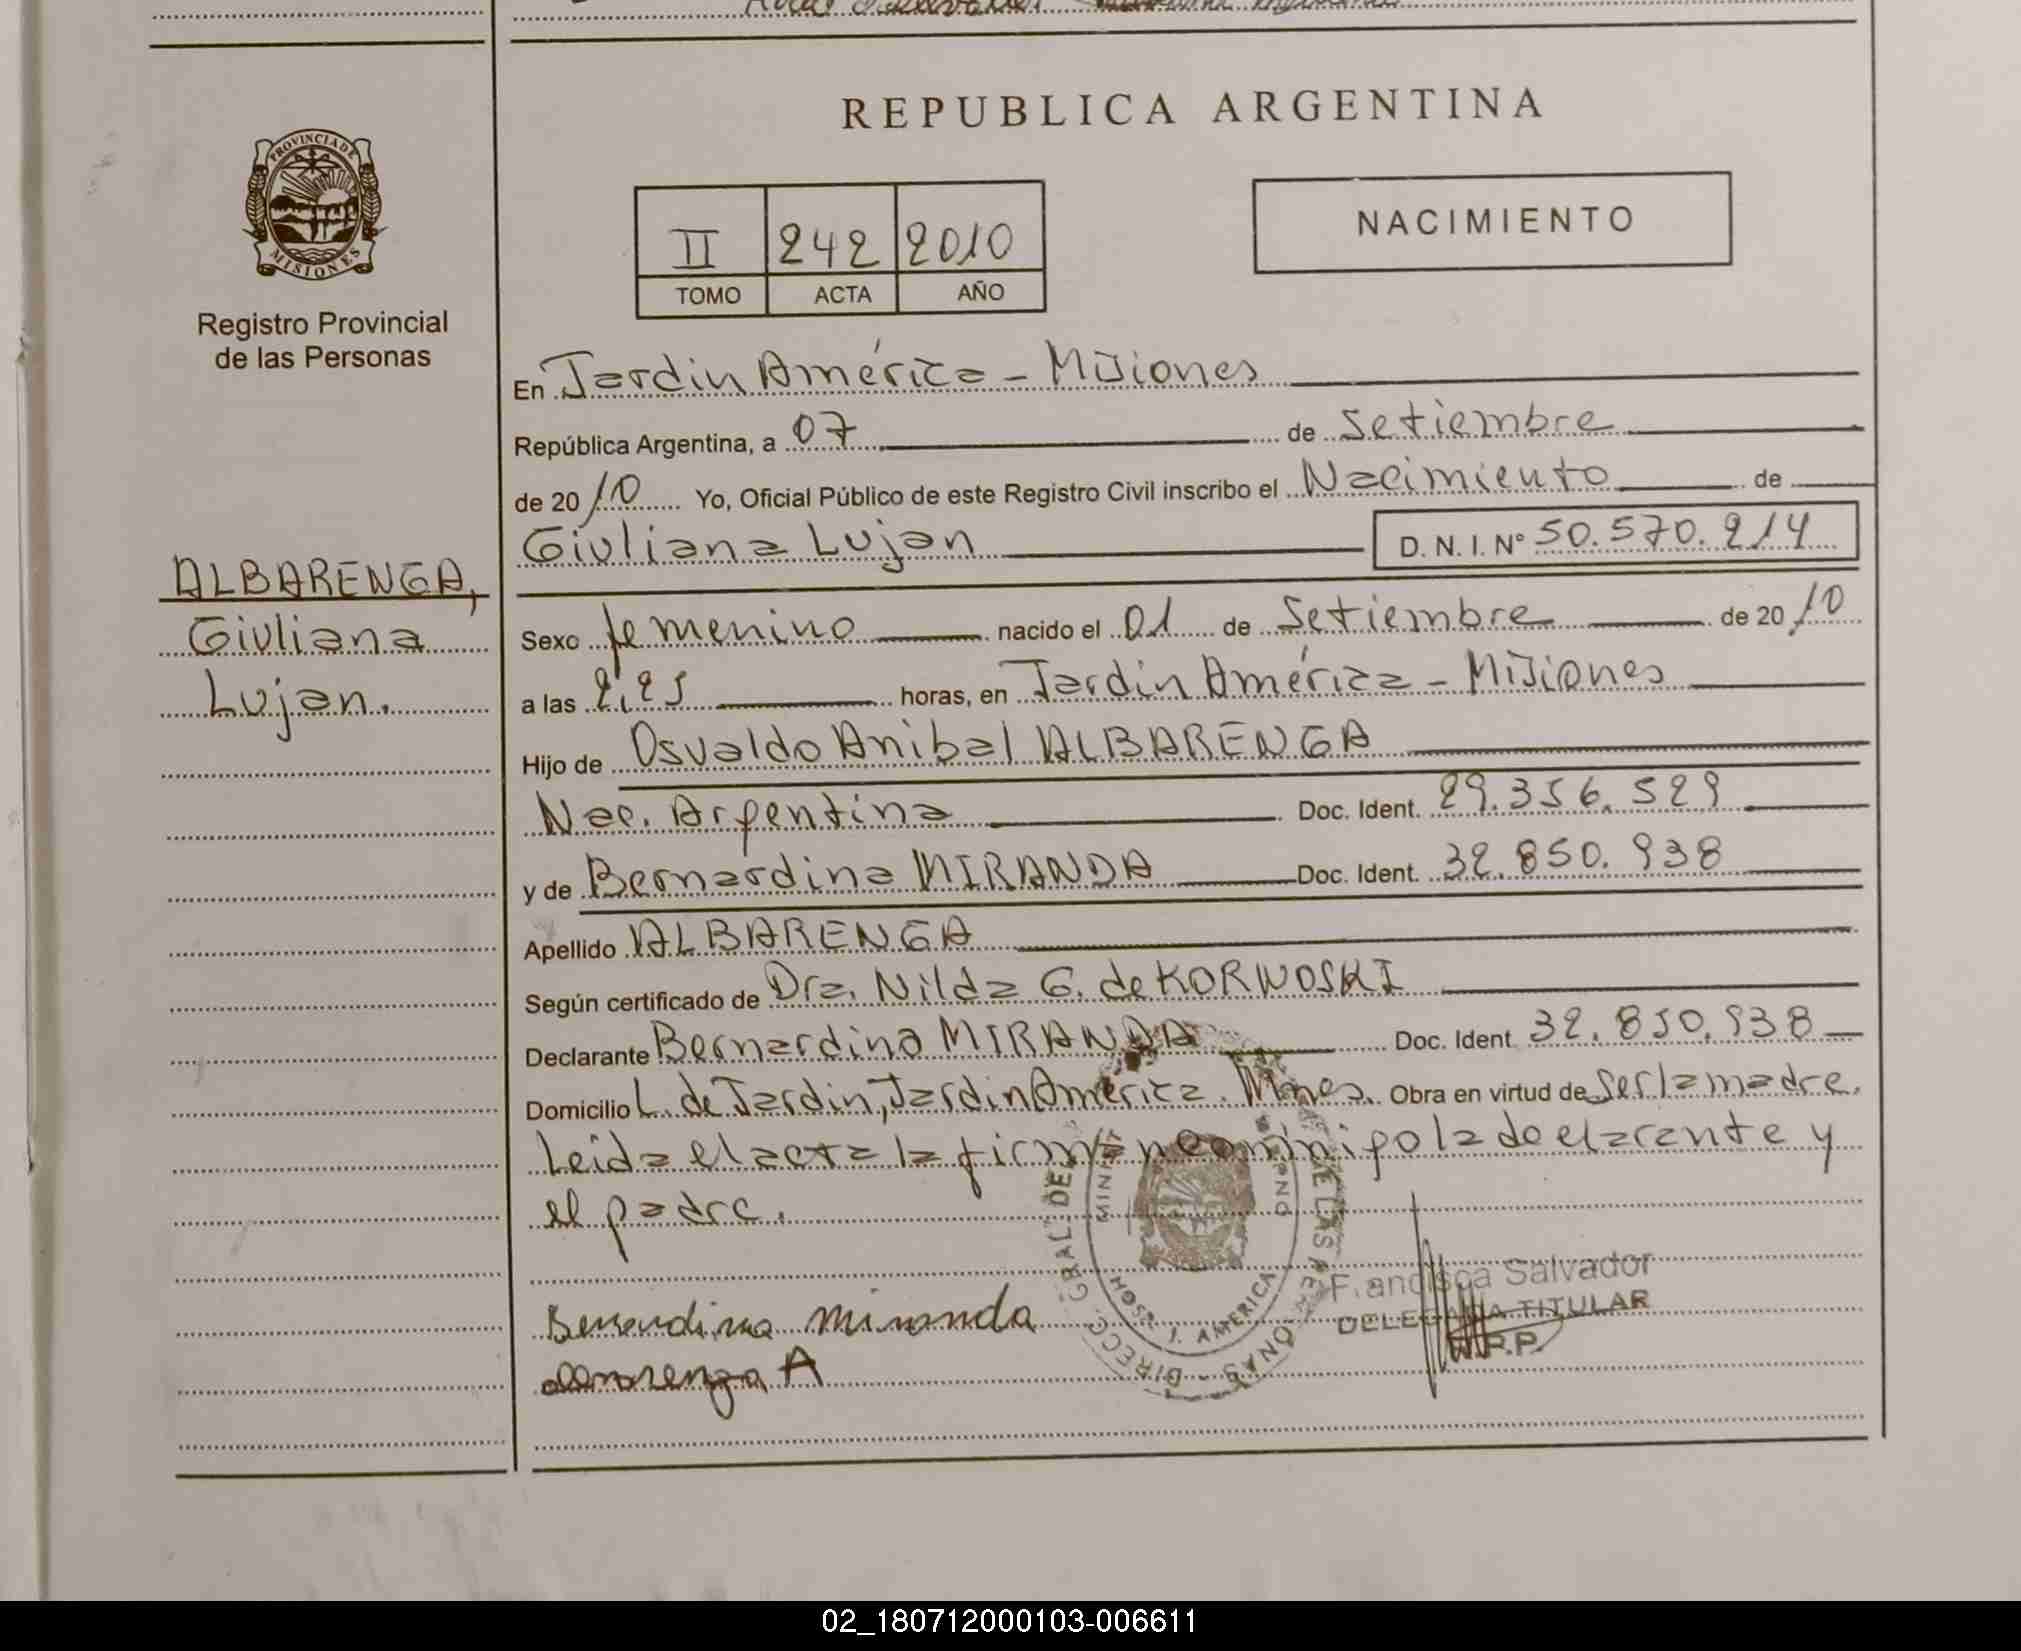 REPUBLICA ARGENTINA
PROVINCIA DE MISIONES
Registro Provincial
de las Personas
II 242 2010
TOMO ACTA AÑO
NACIMIENTO
En Jardin América - Misiones
República Argentina, a 07 de Setiembre
de 20 10 Yo, Oficial Público de este Registro Civil inscribo el Nacimiento de
Giuliana Lujan D. N. I. Nº 50.570.214
ALBARENGA,
Giuliana
Lujan.
Sexo femenino nacido el 01 de Setiembre de 20 10
a las 2,25 horas, en Jardin América - Misiones
Hijo de Osvaldo Anibal ALBARENGA
Nac. Argentina Doc. Ident. 29.356.529
y de Bernardina MIRANDA Doc. Ident. 32.850.938
Apellido ALBARENGA
Según certificado de Dra. Nilda G. de KORNOSKI
Declarante Bernardina MIRANDA Doc. Ident. 32.850.938
Domicilio L. de Jardin, Jardin América. Mnes. Obra en virtud de Ser la madre.
Leida el acta la firman conmigo la declarante y
el padre.
Miranda
A
DIRECC. GRAL DE
HOSP. J. AMERICA
Francisca Salvador
DELEGADA TITULAR
R.P.
02_180712000103-006611